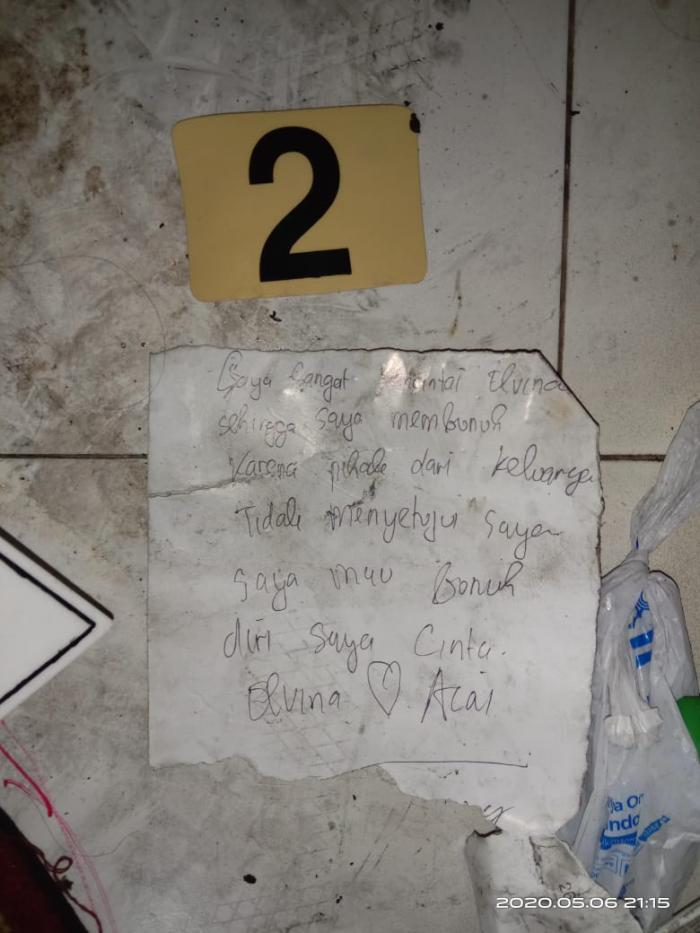 2
Saya Sangat mencintai Elvina
sehingga saya membunuh
Karena pihak dari keluarga
Tidak Menyetujui saya
saya mau Bonuh
diri saya Cinta.
Elvina ♡ Acai
2020.05.06 21:15